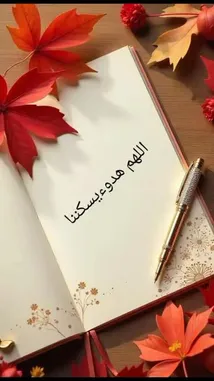 اللهم هدوء يسكننا